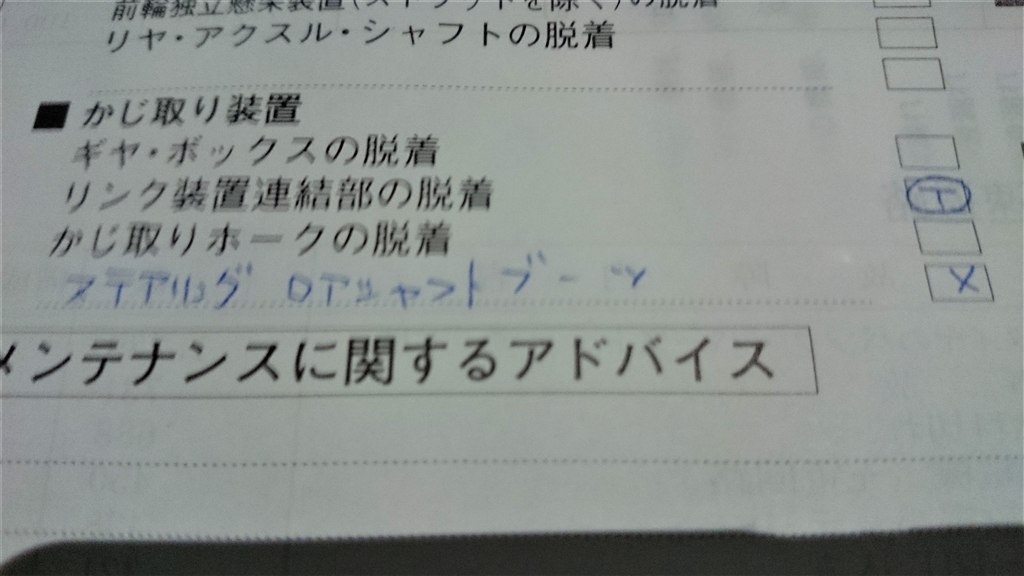 前輪独立懸架装置(ストラットを除く)の脱着
リヤ・アクスル・シャフトの脱着
■ かじ取り装置
ギヤ・ボックスの脱着
リンク装置連結部の脱着 T
かじ取りホークの脱着
ステアリング ロアシャフトブーツ ×
メンテナンスに関するアドバイス